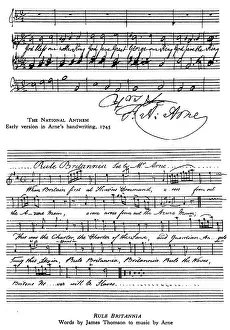 God Save
THE NATIONAL ANTHEM
Early version in Arne's handwriting, 1745
T. A. Arne
Rule Britannia Set by Mr Arne
When Britain first at Heav'ns Command, a rose from out
the A-zure Main, arose arose from out the Azure Main,
This was the Charter, the Charter of the Land, and Guardian An gels
Sung this Strain, Rule Britannia, Britannia Rule the Waves,
Britons never will be Slaves.
RULE BRITANNIA
Words by James Thomson to music by Arne